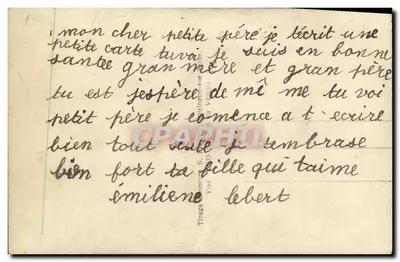 mon cher petite pére je tecrit une
petite carte tuvoi je suis en bonne
santee gran mere et gran père
tu est jespère de mê me tu voi
petit père je comence a t ecrire
bien tout seule je tembrase
bien fort ta fille qui t'aime
émiliene lebert
CPARAMA